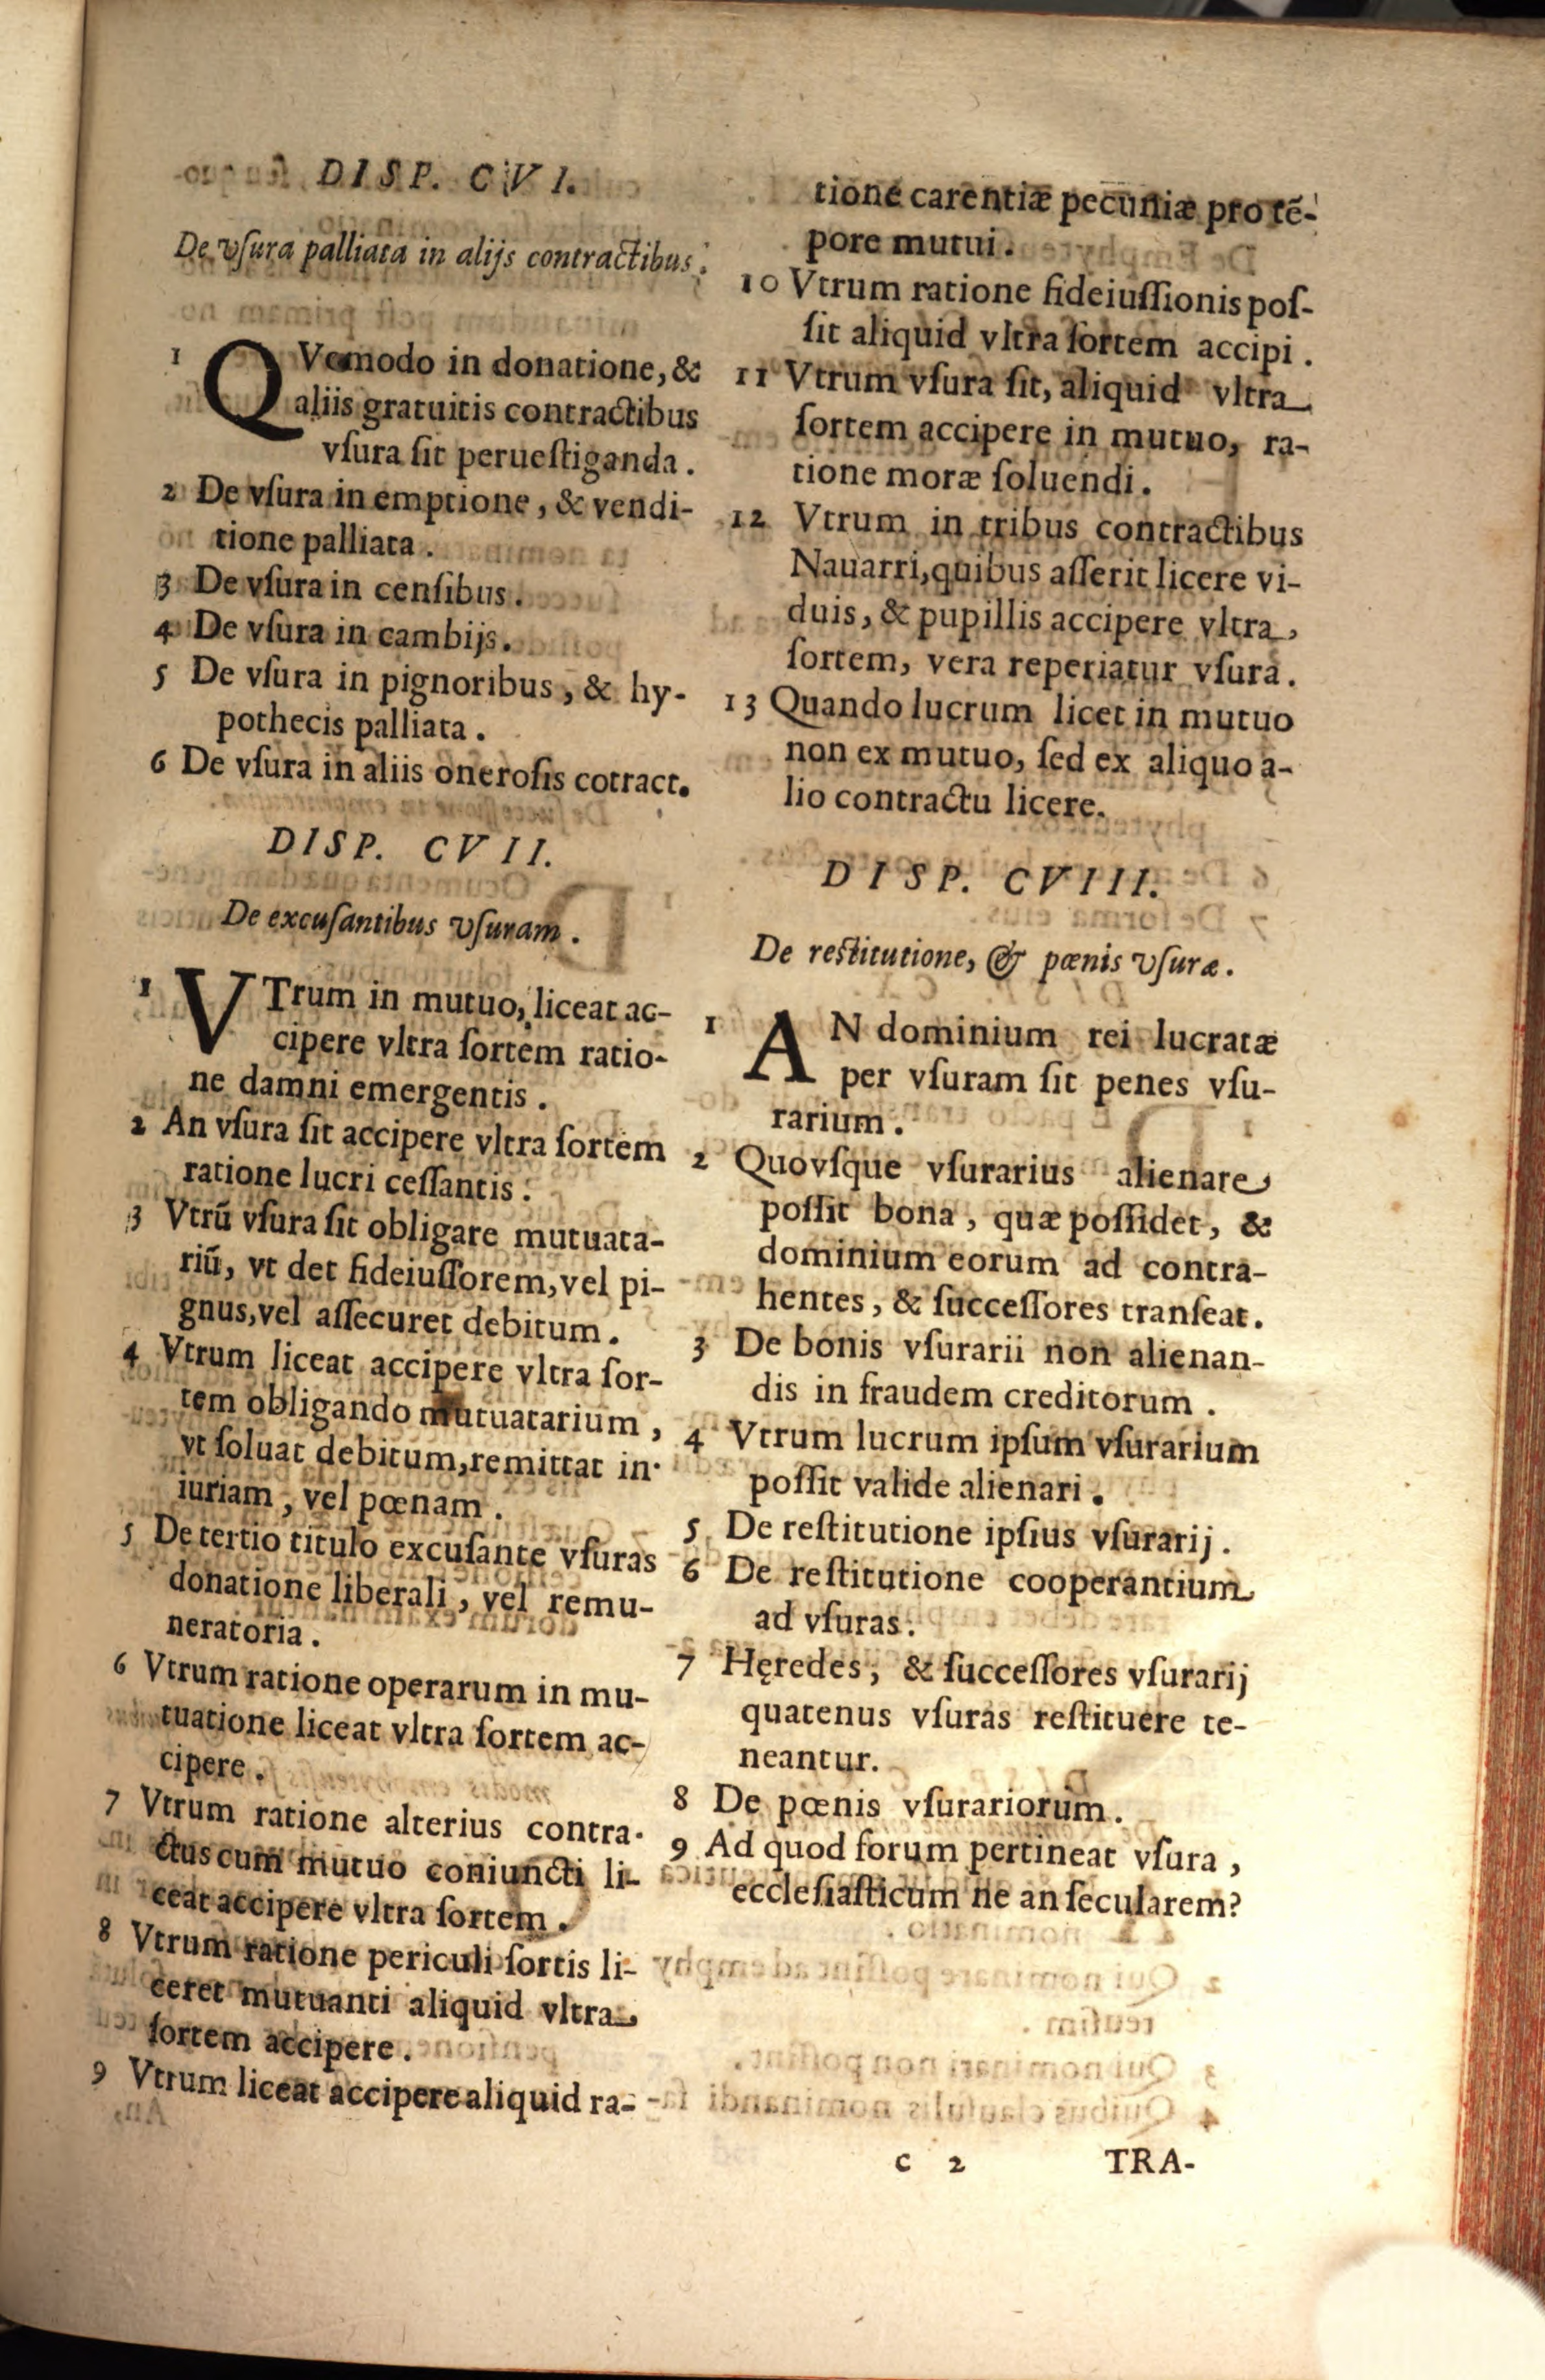 DISP. CVI.
De vſura palliata in alijs contractibus.
1 QVomodo in donatione, &
aliis gratuitis contractibus
vſura ſit perueſtiganda.
2 De vſura in emptione, & vendi-
tione palliata.
3 De vſura in cenſibus.
4 De vſura in cambijs.
5 De vſura in pignoribus, & hy-
pothecis palliata.
6 De vſura in aliis oneroſis cotract.
DISP. CVII.
De excuſantibus vſuram.
1 VTrum in mutuo, liceat ac-
cipere vltra ſortem ratio-
ne damni emergentis.
2 An vſura ſit accipere vltra ſortem
ratione lucri ceſſantis.
3 Vtrū vſura ſit obligare mutuata-
riū, vt det fideiuſſorem, vel pi-
gnus, vel aſſecuret debitum.
4 Vtrum liceat accipere vltra ſor-
tem obligando mutuatarium,
vt ſoluat debitum, remittat in-
iuriam, vel pœnam.
5 De tertio titulo excuſante vſuras
donatione liberali, vel remu-
neratoria.
6 Vtrum ratione operarum in mu-
tuatione liceat vltra ſortem ac-
cipere.
7 Vtrum ratione alterius contra-
ctus cum mutuo coniuncti li-
ceat accipere vltra ſortem.
8 Vtrum ratione periculi ſortis li-
ceret mutuanti aliquid vltra
ſortem accipere.
9 Vtrum liceat accipere aliquid ra-
tione carentiæ pecuniæ pro tē-
pore mutui.
10 Vtrum ratione fideiuſſionis poſ-
ſit aliquid vltra ſortem accipi.
11 Vtrum vſura ſit, aliquid vltra
ſortem accipere in mutuo, ra-
tione moræ ſoluendi.
12 Vtrum in tribus contractibus
Nauarri, quibus aſſerit licere vi-
duis, & pupillis accipere vltra
ſortem, vera reperiatur vſura.
13 Quando lucrum licet in mutuo
non ex mutuo, ſed ex aliquo a-
lio contractu licere.
DISP. CVIII.
De reſtitutione, & pœnis vſuræ.
1 AN dominium rei lucratæ
per vſuram ſit penes vſu-
rarium.
2 Quovſque vſurarius alienare
poſſit bona, quæ poſſidet, &
dominium eorum ad contra-
hentes, & ſucceſſores tranſeat.
3 De bonis vſurarii non alienan-
dis in fraudem creditorum.
4 Vtrum lucrum ipſum vſurarium
poſſit valide alienari.
5 De reſtitutione ipſius vſurarij.
6 De reſtitutione cooperantium
ad vſuras.
7 Hęredes, & ſucceſſores vſurarij
quatenus vſuras reſtituere te-
neantur.
8 De pœnis vſurariorum.
9 Ad quod forum pertineat vſura,
eccleſiaſticum ne an ſecularem?
c 2 TRA-